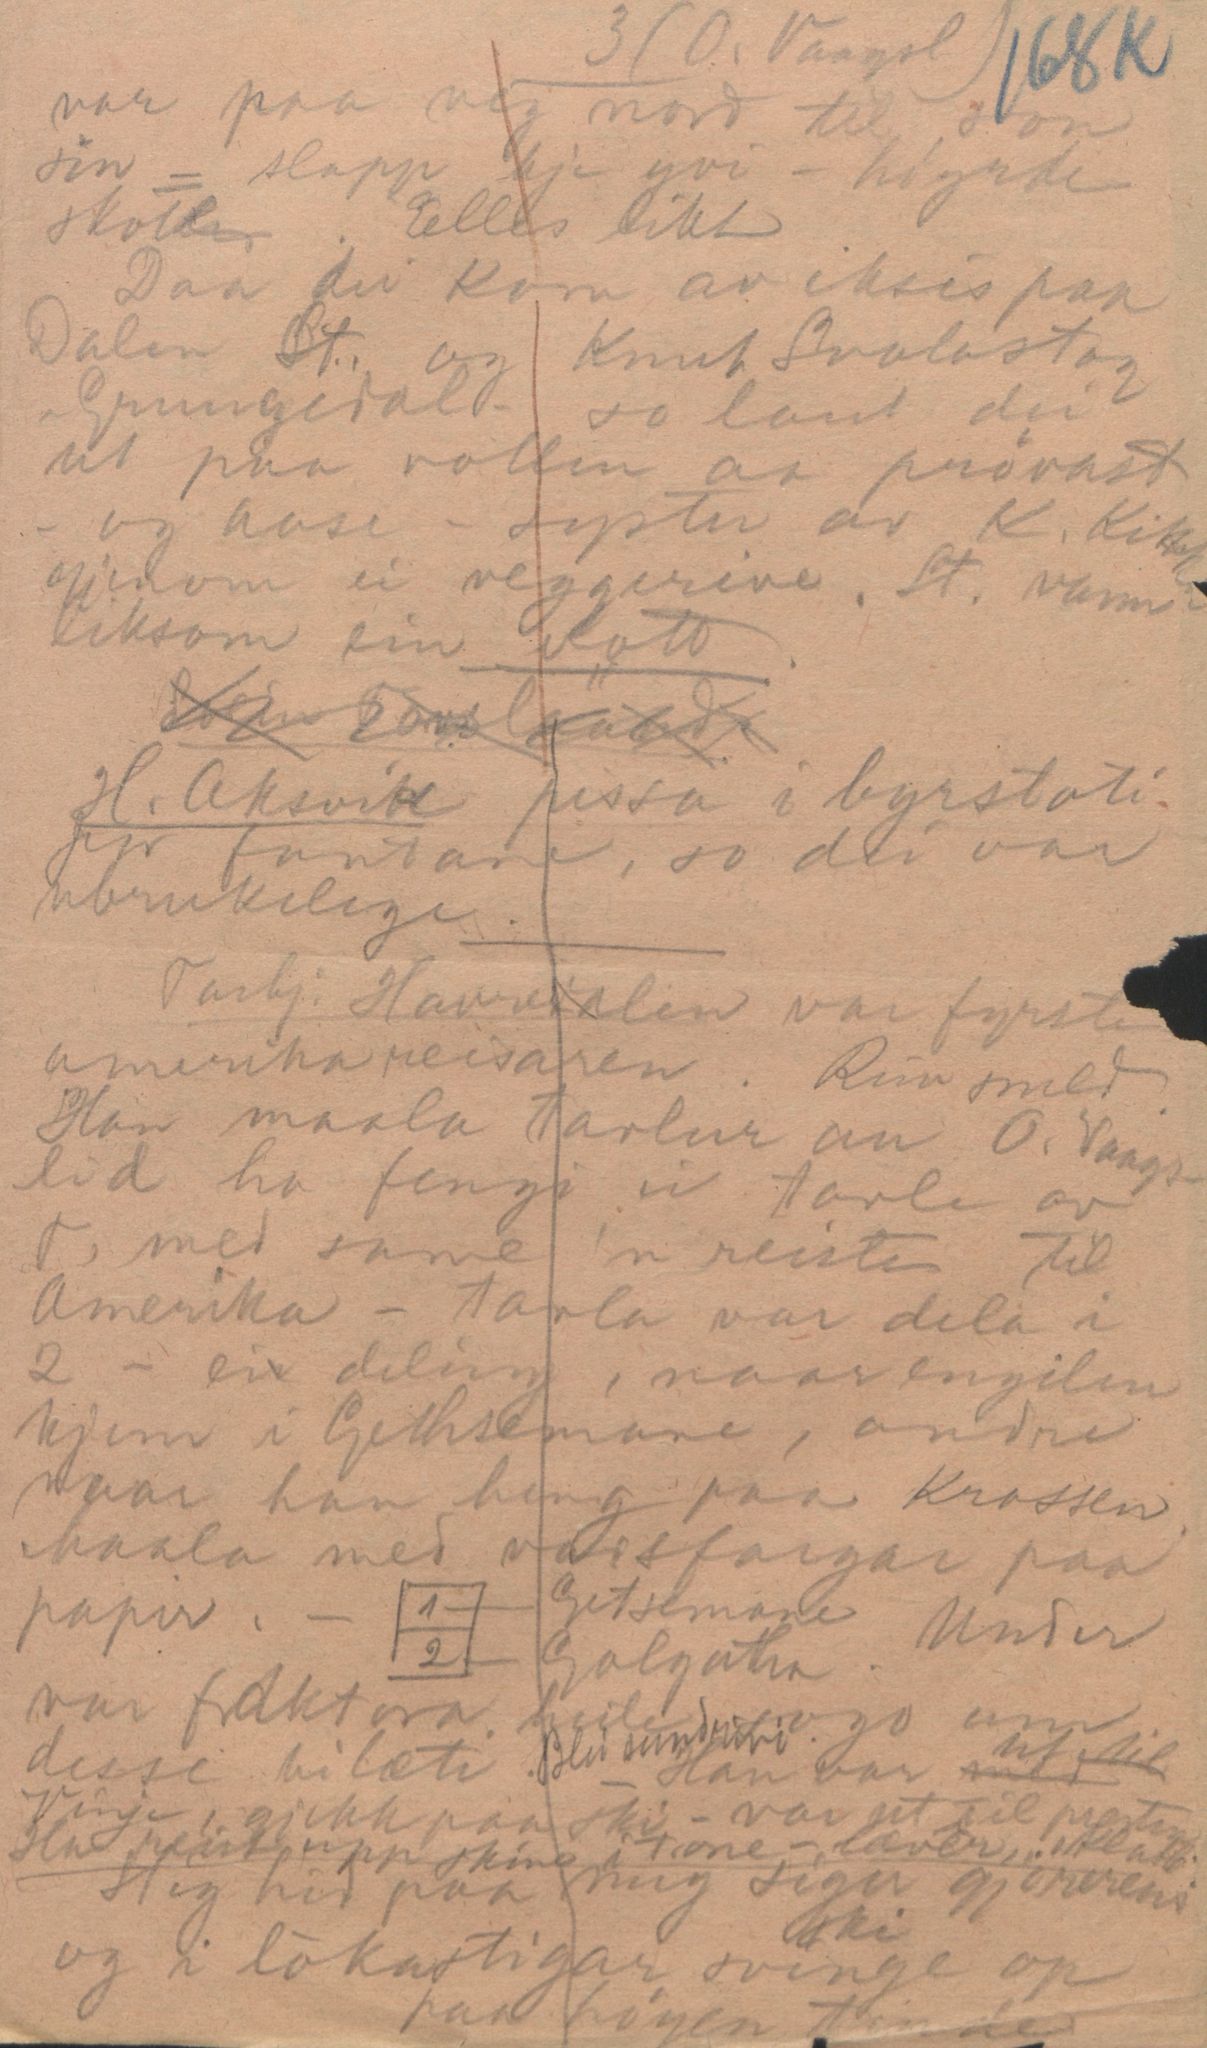 3 (O. Vaagsl) 168 K
var paa veg nord til son
sin = slapp kje yvi - høyrde
skotti. Elles likt
Daa dei kom av eksis paa
Dalen St. og Knut Svalastog
- Grungedal - so laut dei
ut paa vollen aa prövast
- og aase - syster av K. kikka
gjenom ei veggerive. St. vann
liksom ein vött.
H. Aksvik pissa i byrstoti
fyr fantane, so dei var
ubrukelege.
Tarbj. Havredalen var fyrste
amerikareisaren. Rivsmed.
Han maala tavlur au O. Vaags-
lid ha fengi ei tavle av
T. med same 'n reiste til
Amerika - tavla var dela i
2 - ei deling, naar engilen
kjem i Gethsemane, andre
naar han heng paa Krossen,
maala med vassfargar paa
papir. - 1 - Getsemane
2 - Golgatha. Under
var fraktora heile sogo um
desse bilæti. Blei sundrivi. - Han var ut til
Vinje, gjekk paa ski - var ut til prestin
Ha reist upp skine i
Stig hid paa mig siger
og i lökastigar ski svinge op
paa höyen tinde